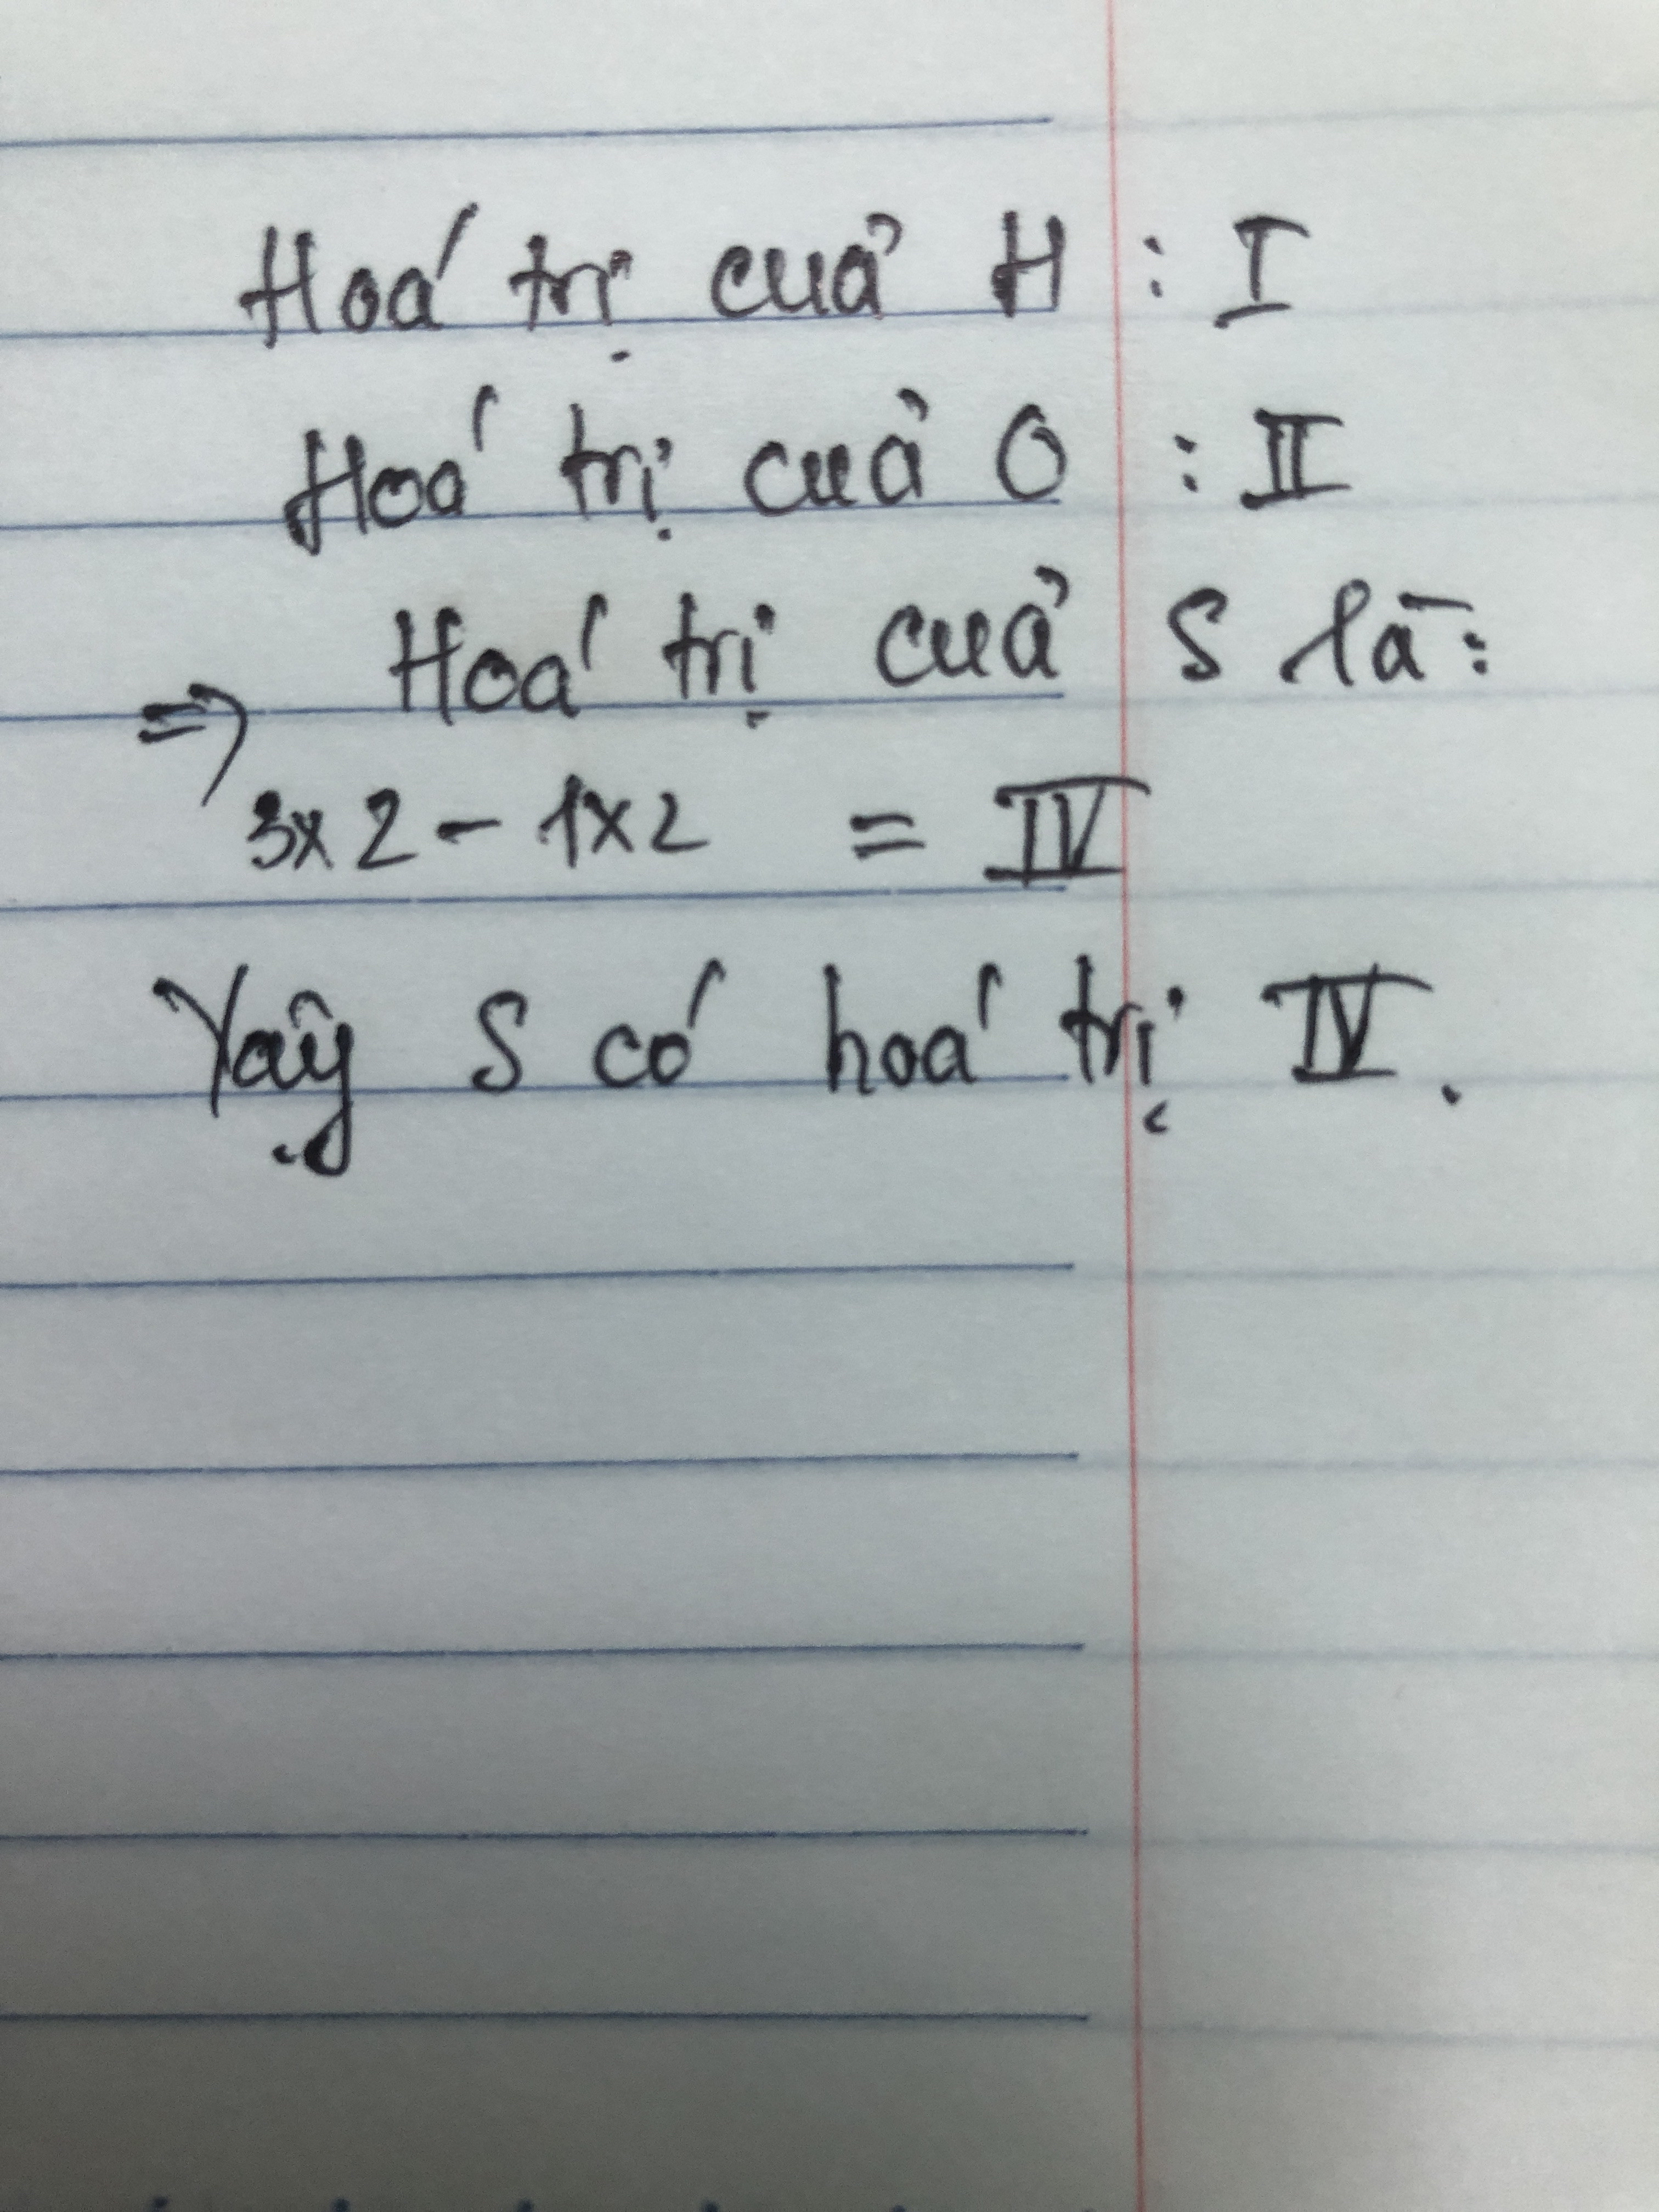 Hoá trị của H : I
Hoá trị của O : II
=> Hoá trị của S là:
3x2 - 1x2 = IV
Vậy S có hoá trị IV.